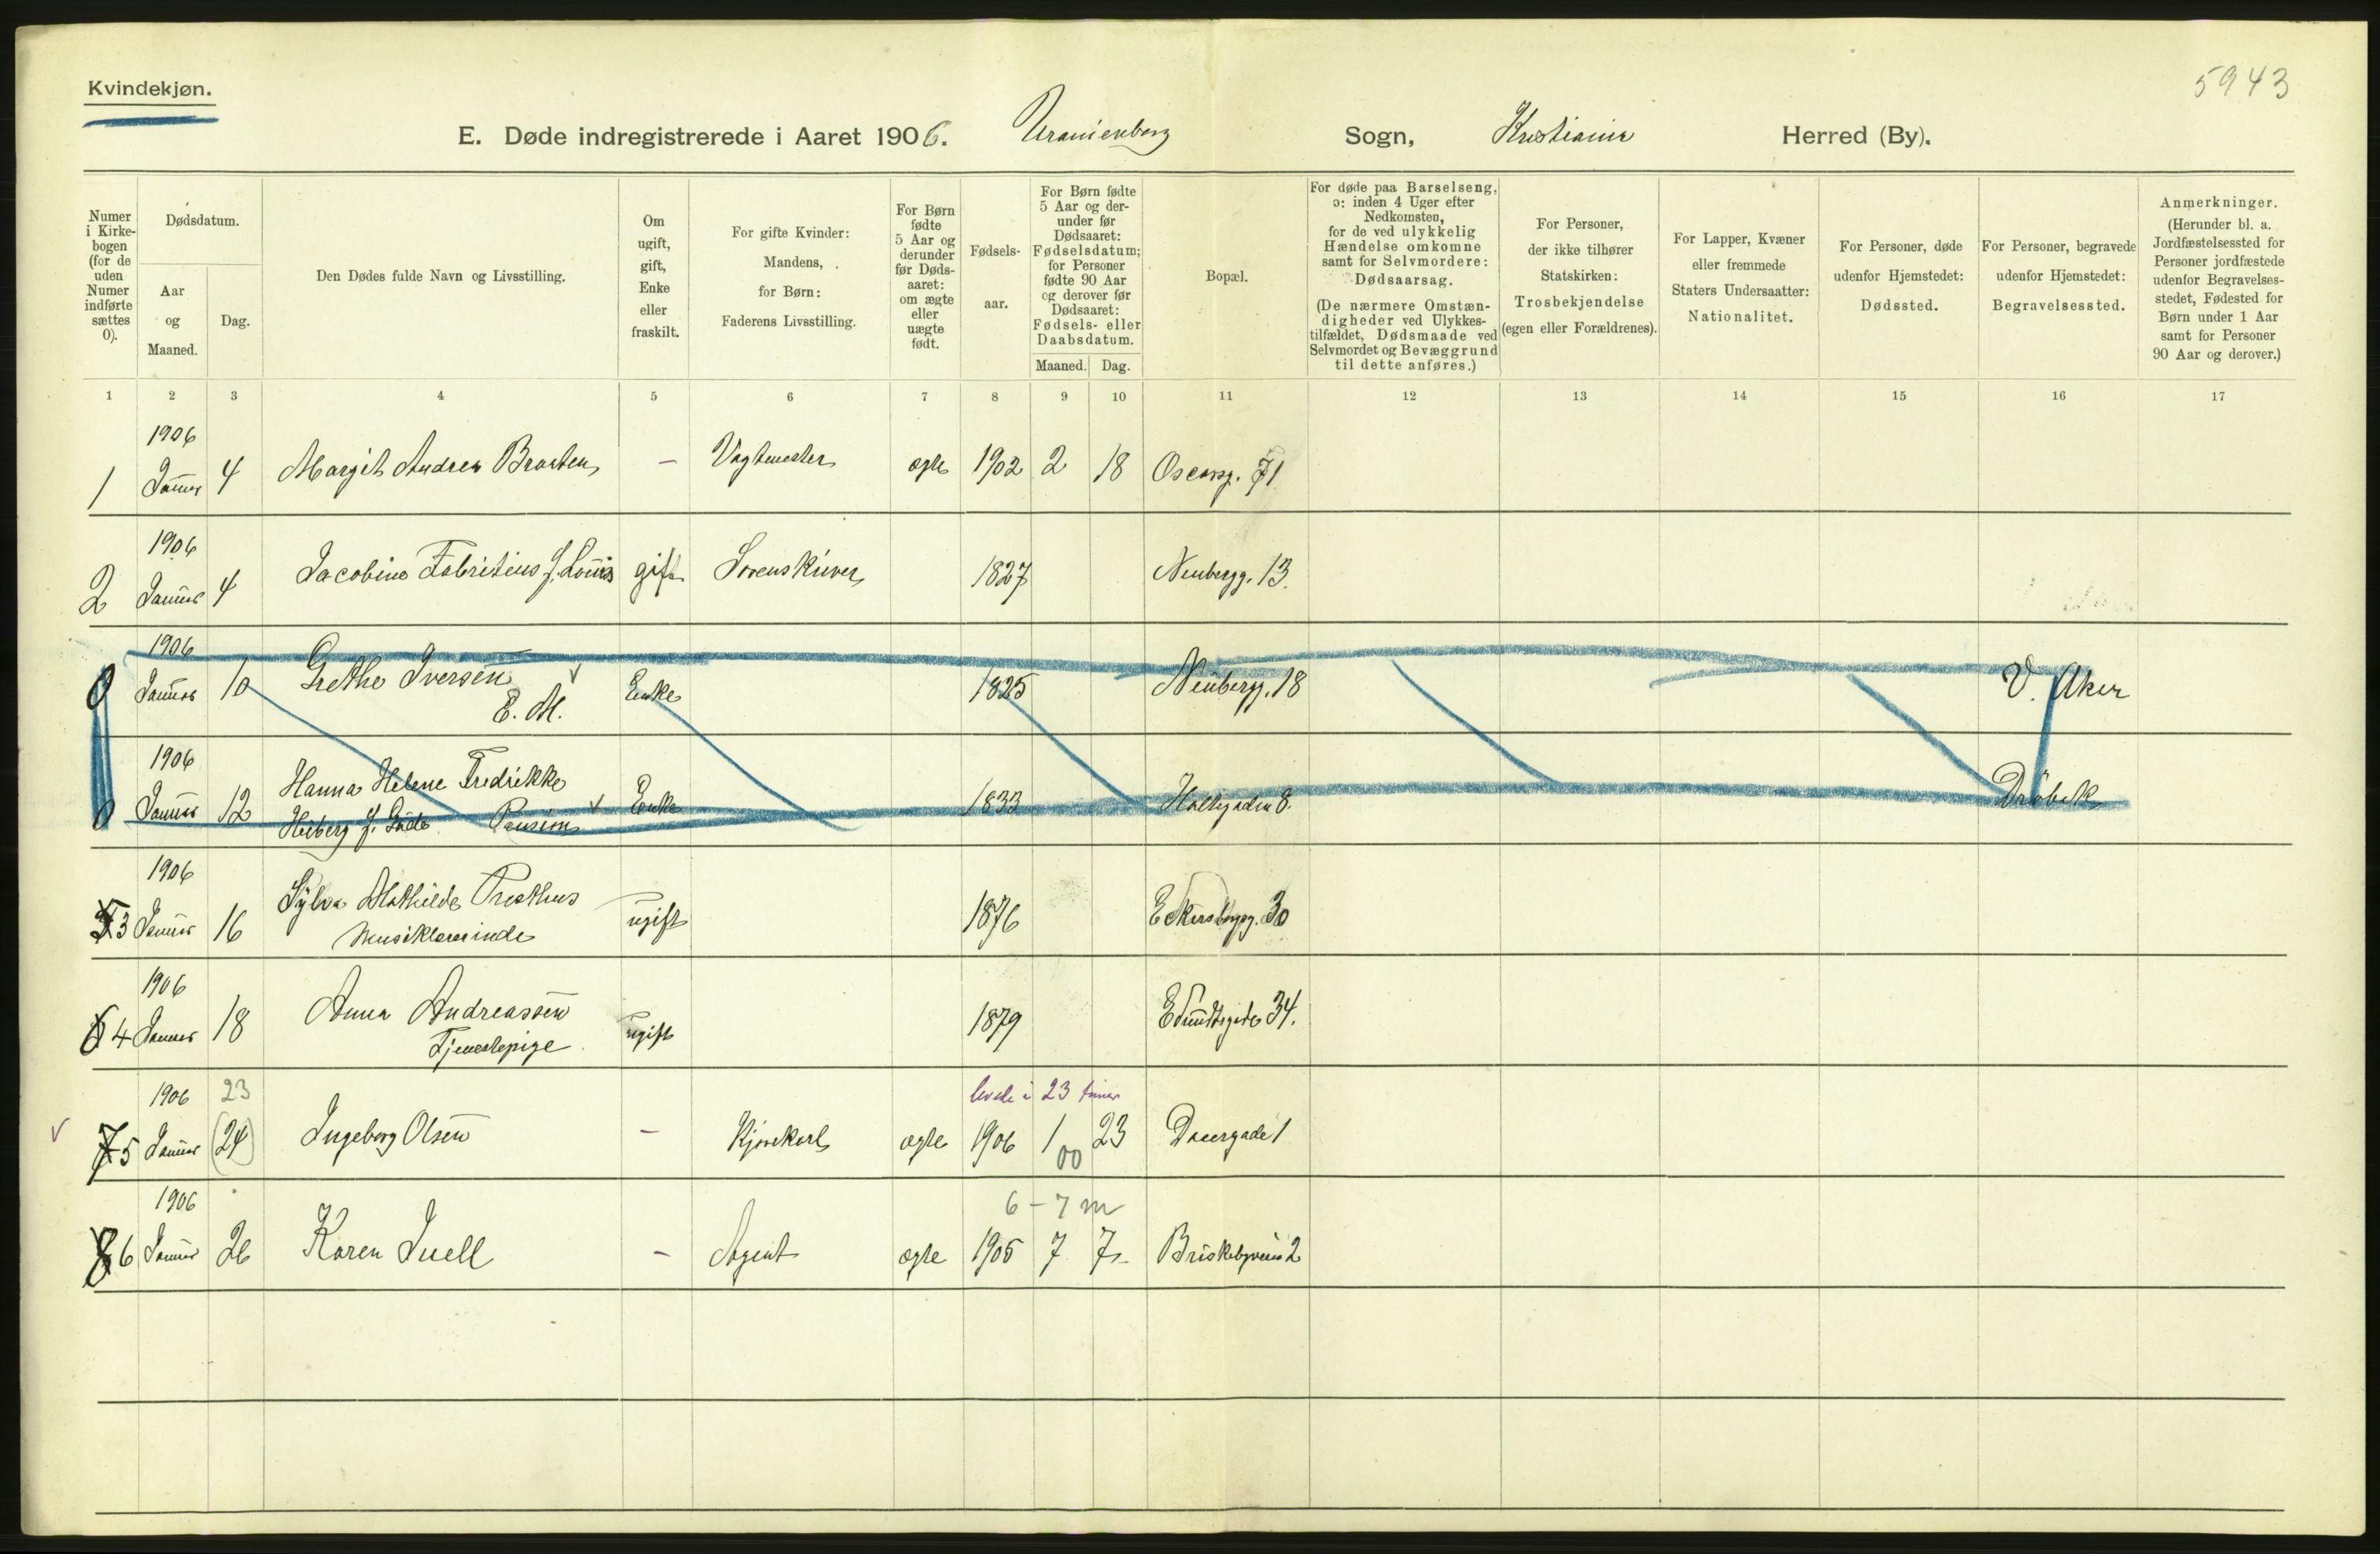 Kvindekjøn.
5943
E. Døde indregistrerede i Aaret 1906. Uranienborg Sogn, Kristiania Herred (By).
Numer i Kirkebogen (for de uden Numer indførte sættes 0).
Dødsdatum.
Aar og Maaned.
Dag.
Den Dødes fulde Navn og Livsstilling.
Om ugift, gift, Enke eller fraskilt.
For gifte Kvinder: Mandens, for Børn: Faderens Livsstilling.
For Børn fødte 5 Aar og derunder før Dødsaaret: om ægte eller uægte født.
Fødselsaar.
For Børn fødte 5 Aar og derunder før Dødsaaret: Fødselsdatum; for Personer fødte 90 Aar og derover før Dødsaaret: Fødsels- eller Daabsdatum.
Maaned. Dag.
Bopæl.
For døde paa Barselseng, ɔ: inden 4 Uger efter Nedkomsten, for de ved ulykkelig Hændelse omkomne samt for Selvmordere: Dødsaarsag.
(De nærmere Omstændigheder ved Ulykkestilfældet, Dødsmaade ved Selvmordet og Bevæggrund til dette anføres.)
For Personer, der ikke tilhører Statskirken: Trosbekjendelse (egen eller Forældrenes).
For Lapper, Kvæner eller fremmede Staters Undersaatter: Nationalitet.
For Personer, døde udenfor Hjemstedet: Dødssted.
For Personer, begravede udenfor Hjemstedet: Begravelsessted.
Anmerkninger.
(Herunder bl. a. Jordfæstelsessted for Personer jordfæstede udenfor Begravelsesstedet, Fødested for Børn under 1 Aar samt for Personer 90 Aar og derover.)
1 2 3 4 5 6 7 8 9 10 11 12 13 14 15 16 17
1906
1 Januar 4 Margit Andrea Braaten – Vagtmester ægte 1902 2 18 Oscarsg. 71
1906
2 Januar 4 Jacobine Fabritius f. gift Sorenskriver 1827 Neubergg. 13.
1906
0 Januar 10 Grethe Iversen E. M. Enke 1825 Neubergg. 18 V. Aker
1906
0 Januar 12 Hanna Helene Fredrikke
Heiberg f. Pension Enke 1833 8. Drøbak
1906
3 Januar 16 Sylva Mathilde Presthus
Musiklærerinde ugift 1876 Eckersbergg. 30
1906
4 Januar 18 Anna Andreassen
Tjenestepige ugift 1879 Eilert Sundtsgade 34.
1906 23 levede i 23 timer
5 Januar (24) Ingeborg Olsen – Kjørekarl ægte 1906 1 23 Daasgade 1
00
1906 6 - 7 m
6 Januar 26 Karen Juell – Agent ægte 1905 7 7 Briskebyveien 2